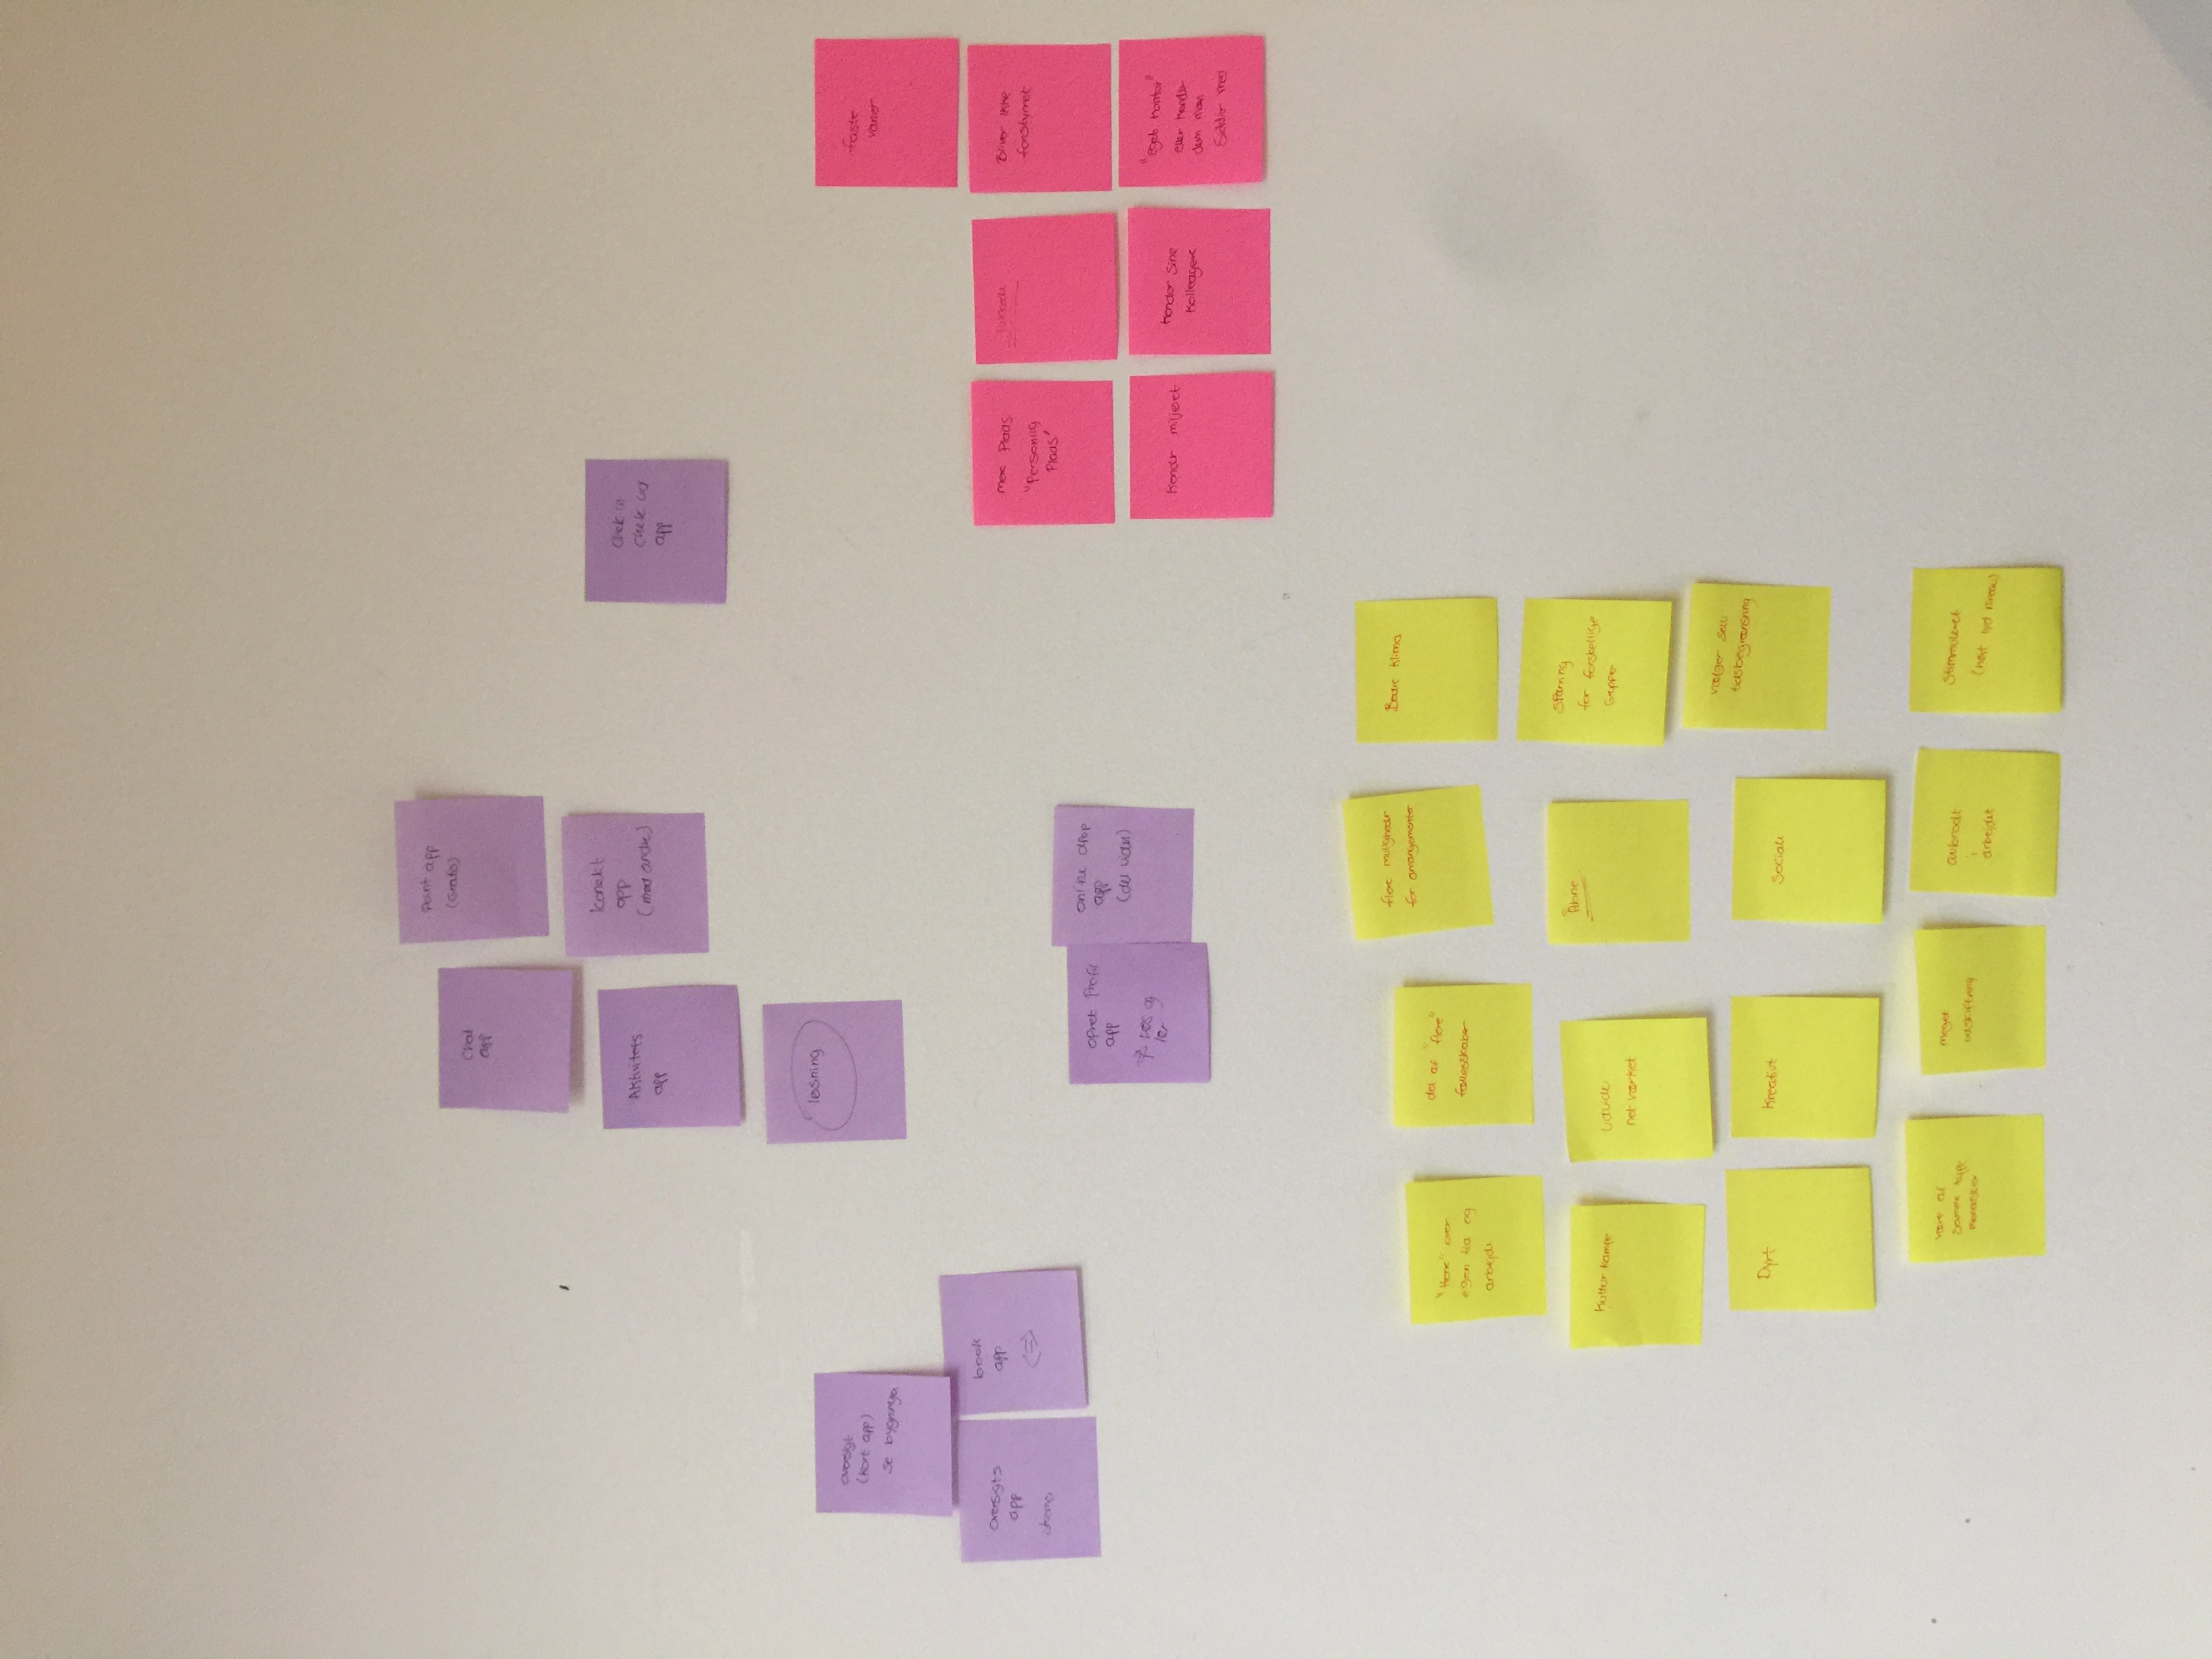 Chat
app
Point app
(Gratis)
Aktivitets
app
konekt
app
(med andre)
chek in
chek ud
app
løsning
oversigt
(kort app)
se bygninger
oversigts
app
book
app
opret Profil
app
online drop
app
(del viden)
faste
vaner
mere Plads
"Personlig
Plads"
Lukkede
Bliver ikke
forstyrret
Kender miljøet
Kender sine
kolleager
"eget kontor"
eller kender
dem man
Sidder med
"Herre" over
egen tid og
arbejde
del af "flere"
fællesskaber
flere muligheder
for arrangementer
Bedre klima
Kultur kampe
udvide
net værket
Åbne
Sparring
for forskellige
Grupper
Dyrt
Kreativt
Sociale
vælger selv
tidsbegrænsning
vært af
Samme type
mennesker
meget
udskiftning
avbrudt
i
arbejdet
Stimuleret
(højt lyd niveau)